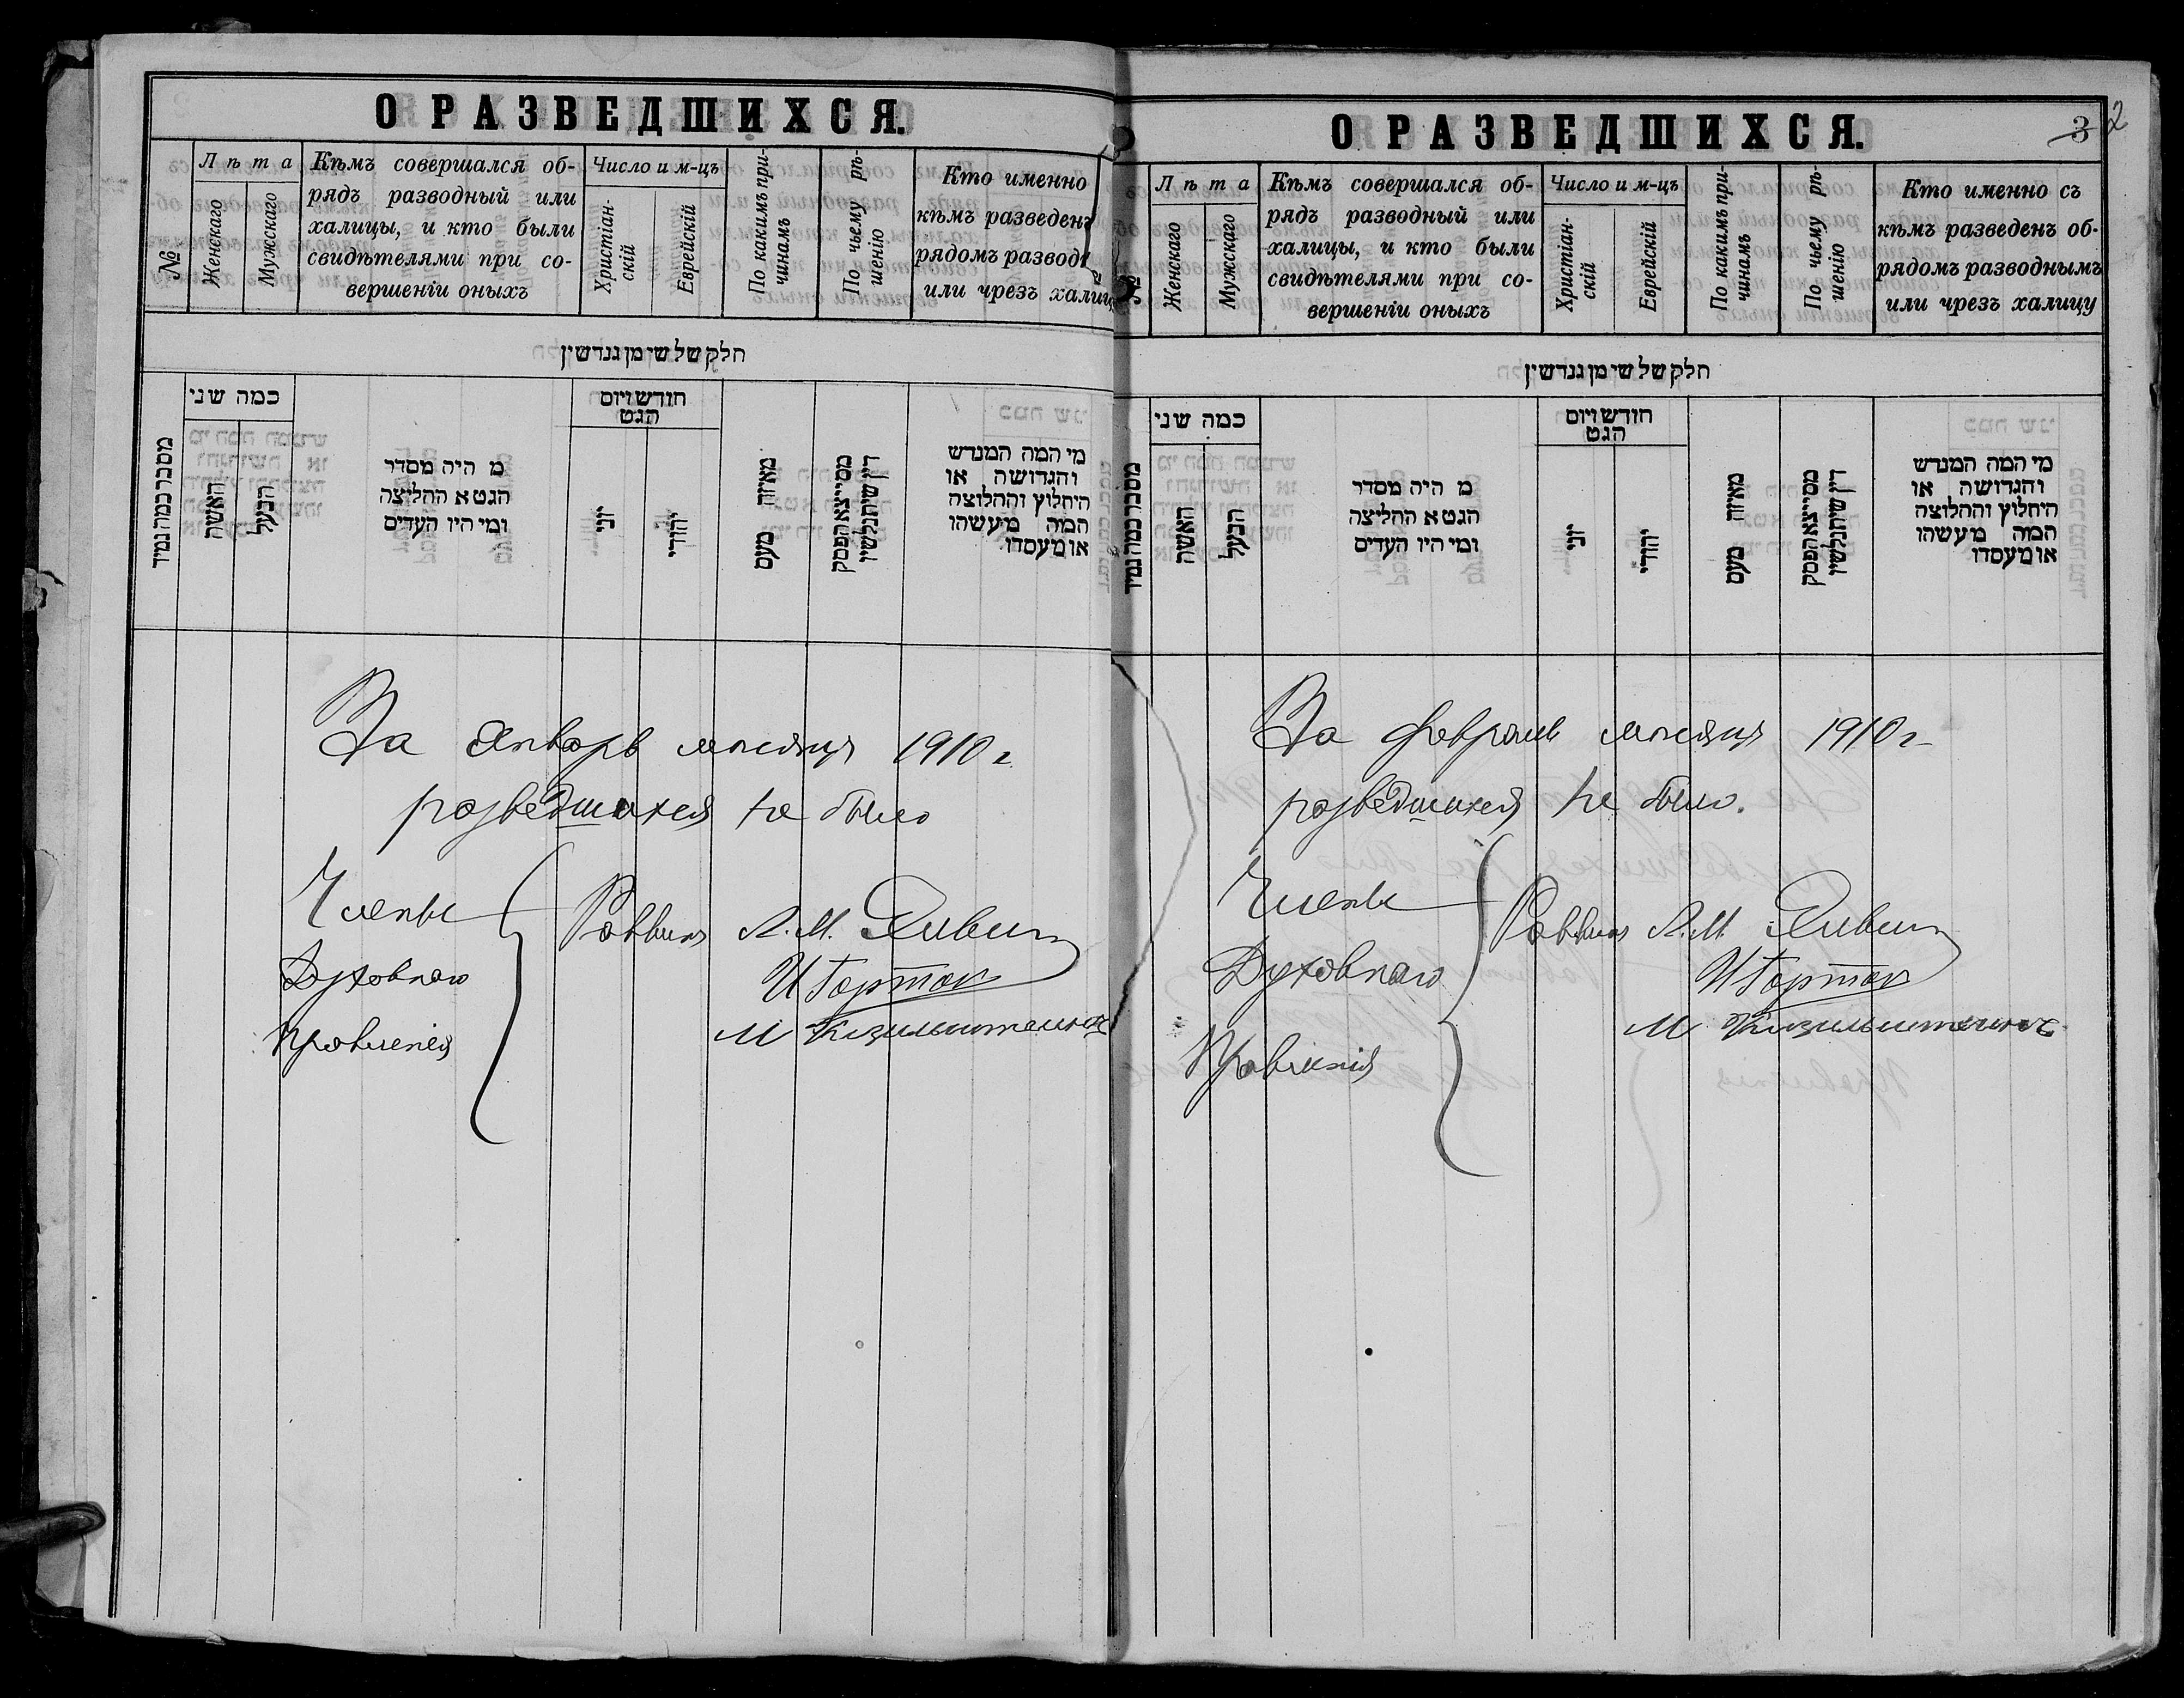 О РАЗВЕДШИХСЯ.
№
Лѣта
Женскаго
Мужскаго
Кѣмъ совершался об-
рядъ разводный или
халицы, и кто были
свидѣтелями при со-
вершеніи оныхъ
Число и м-цъ
Христіан-
скій
Еврейскій
По какимъ при-
чинамъ
По чьему рѣ-
шенію
Кто именно
кѣмъ разведенъ
рядомъ развод
или чрезъ халиц
חלק של שי מן גנרשין
כמה שני
האשה
הבעל
מ היה מסדר
הגט א ההליצה
ומי היו העדים
חודש ויום
הגט
יוני
יהודי
מאיזה טעם
מי המה המגרש
והגרושה או
היחלוץ וההלוצה
המה מעשהו
או מעסדו
За Январь мѣсяцъ 1910 г.
разведшихся не было
Члены
Духовнаго
Правленія
Раввинъ Л. М.
И Гортов
М
О РАЗВЕДШИХСЯ.
3 2
Лѣта
Женскаго
Мужскаго
Кѣмъ совершался об-
рядъ разводный или
халицы, и кто были
свидѣтелями при со-
вершеніи оныхъ
Число и м-цъ
Христіан-
скій
Еврейскій
По какимъ при-
чинамъ
По чьему рѣ-
шенію
Кто именно съ
кѣмъ разведенъ об-
рядомъ разводнымъ
или чрезъ халицу
חלק של שי מן גנרשין
כמה שני
האשה
הבעל
מ היה מסדר
הגט א ההליצה
ומי היו העדים
חודש ויום
הגט
יוני
יהודי
מאיזה טעם
מי המה המגרש
והגרושה או
היחלוץ וההלוצה
המה מעשהו
או מעסדו
За февраль мѣсяцъ 1910 г.
разведшихся не было.
Члены
Духовнаго
Правленія
Раввинъ Л. М.
И Гортов
М